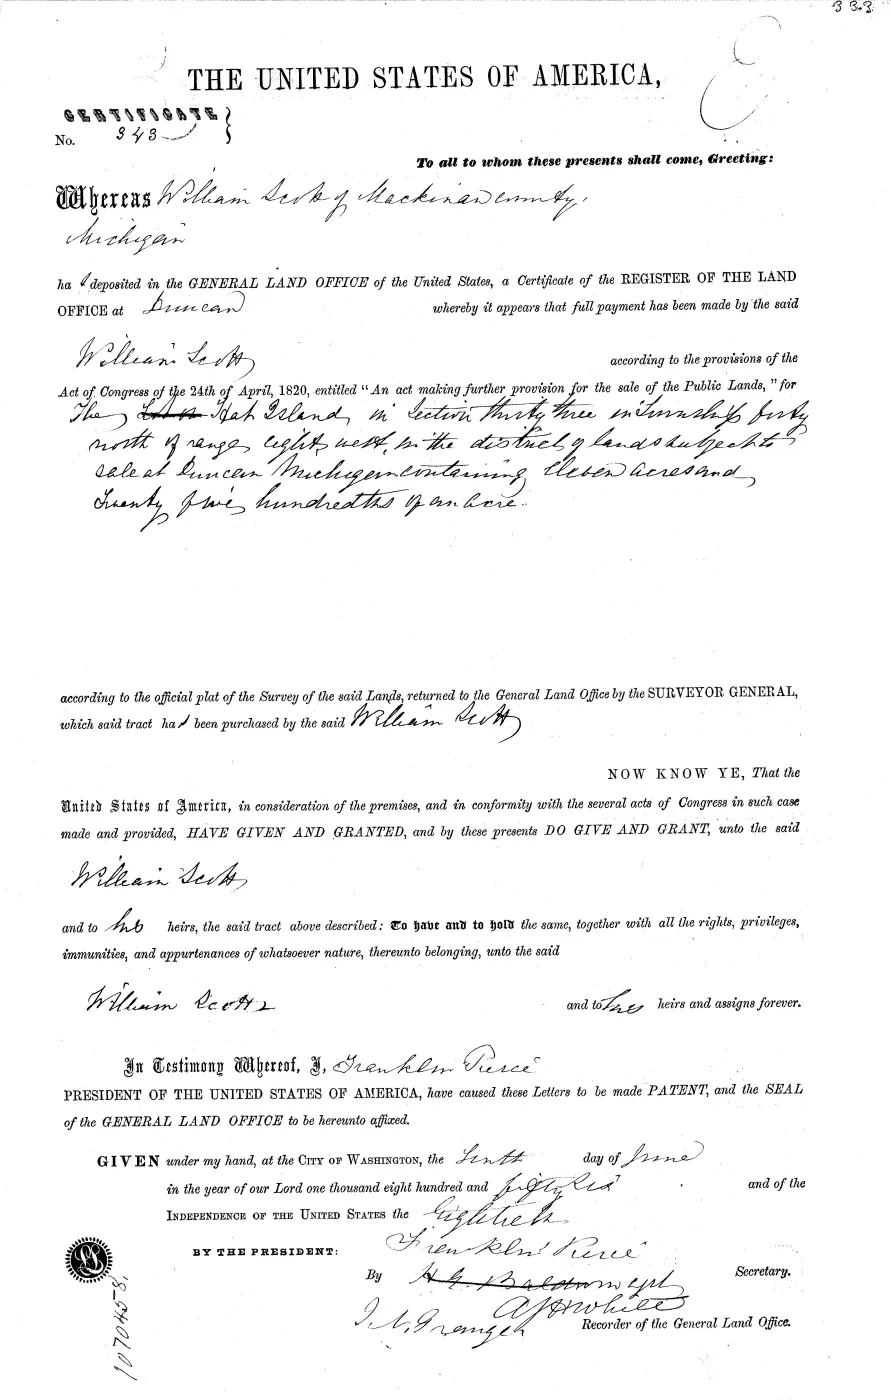 333
THE UNITED STATES OF AMERICA,
CERTIFICATE
No. 343
To all to whom these presents shall come, Greeting:
Whereas William Scott of Mackinaw county,
Michigan
ha s deposited in the GENERAL LAND OFFICE of the United States, a Certificate of the REGISTER OF THE LAND
OFFICE at Duncan whereby it appears that full payment has been made by the said
William Scott according to the provisions of the
Act of Congress of the 24th of April, 1820, entitled "An act making further provision for the sale of the Public Lands," for
The Hat Island, in Section thirty three in Township forty
north of range eight, west, in the district of lands subject to
sale at Duncan Michigan containing Eleven acres and
Twenty five hundredths of an acre.
according to the official plat of the Survey of the said Lands, returned to the General Land Office by the SURVEYOR GENERAL,
which said tract ha s been purchased by the said William Scott
NOW KNOW YE, That the
United States of America, in consideration of the premises, and in conformity with the several acts of Congress in such case
made and provided, HAVE GIVEN AND GRANTED, and by these presents DO GIVE AND GRANT, unto the said
William Scott
and to his heirs, the said tract above described: To have and to hold the same, together with all the rights, privileges,
immunities, and appurtenances of whatsoever nature, thereunto belonging, unto the said
William Scott and to his heirs and assigns forever.
In Testimony Whereof, I, Franklin Pierce
PRESIDENT OF THE UNITED STATES OF AMERICA, have caused these Letters to be made PATENT, and the SEAL
of the GENERAL LAND OFFICE to be hereunto affixed.
GIVEN under my hand, at the CITY OF WASHINGTON, the tenth day of June
in the year of our Lord one thousand eight hundred and fifty six and of the
INDEPENDENCE OF THE UNITED STATES the Eightieth
BY THE PRESIDENT: Franklin Pierce
By H. G. Baldwin Secretary.
White
J. N. Granger Recorder of the General Land Office.
LS
1070458.